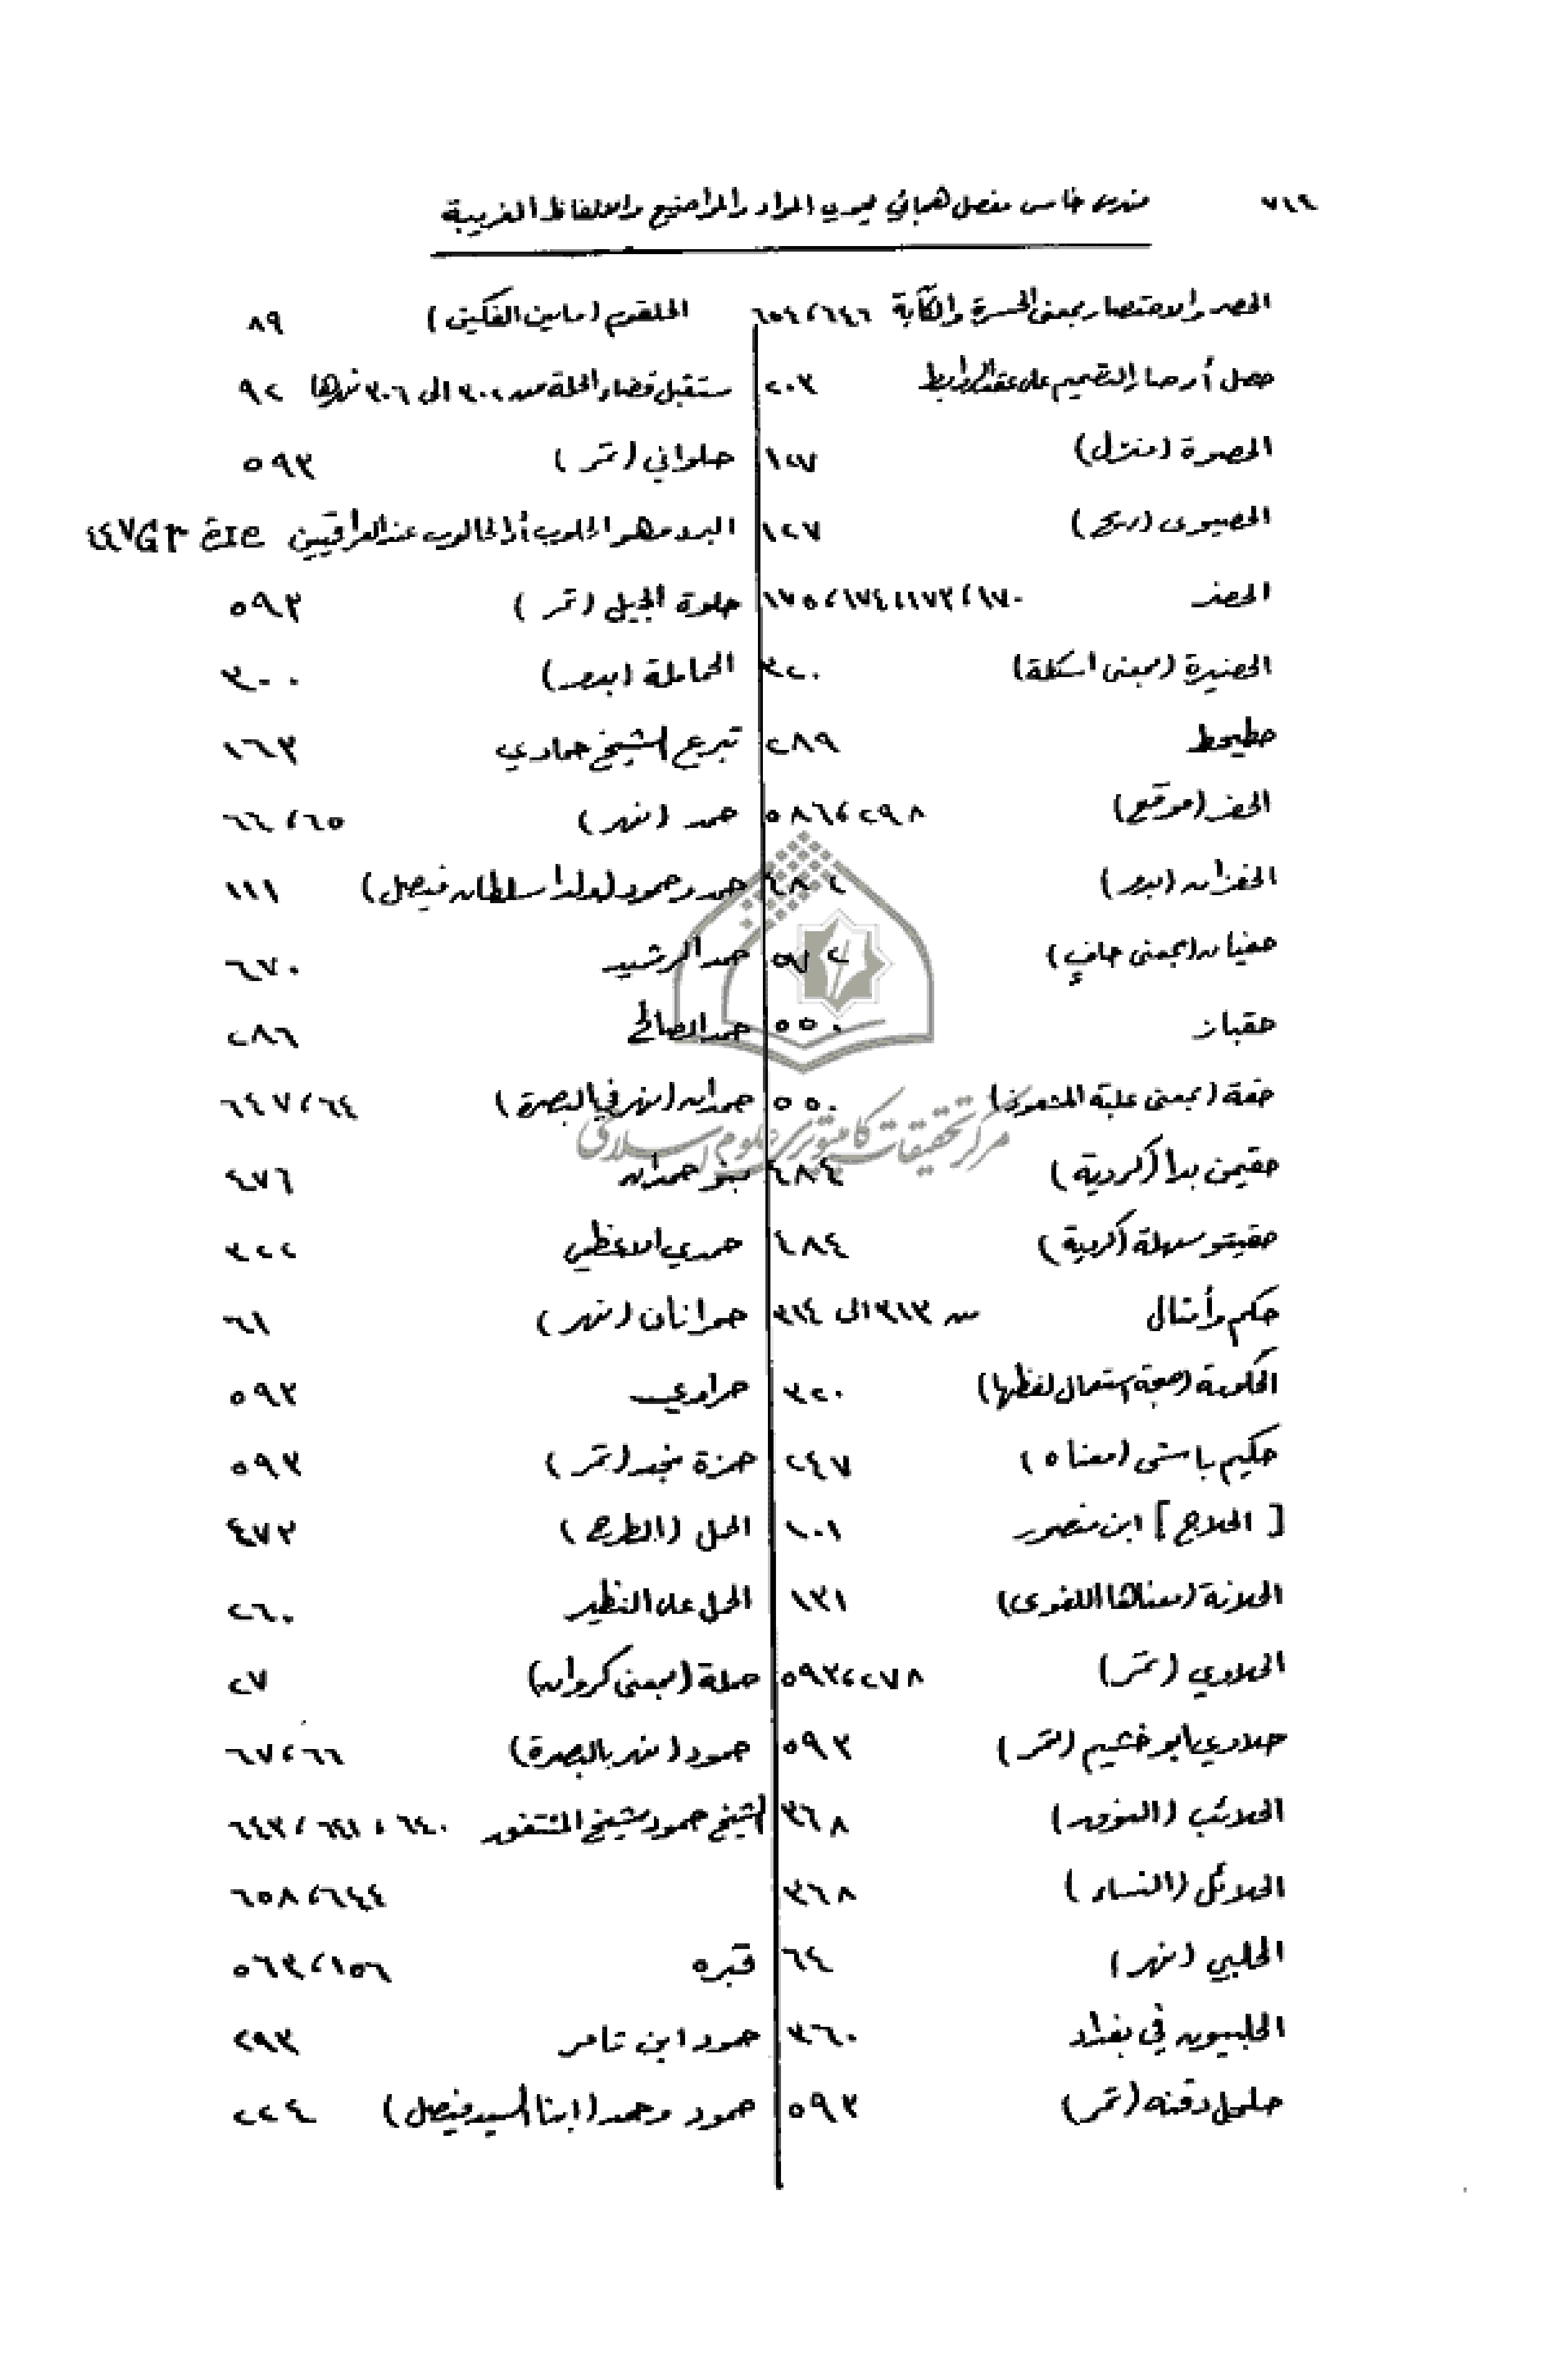 ٧٤٤
فهرس خامس مفصل هجائي يحوي المواد والمواضيع والالفاظ الغريبة
الحصر والاحتصار بمعنى الحسرة والكآبة ٦٤٦، ٦٥٤
حصل أرصا والتصميم على عقد الروابط ٢٠٣
الحصوة (منزل) ١٥٧
الحصيوى (ريح) ١٢٧
الحضر ١٧٠، ١٧٣، ١٧٤، ١٧٥
الحضيرة (بمعنى اسكلة) ٣٢٠
حطيحط ٢٨٩
الحفر (موقع) ٢٩٨، ٥٨٦
الحفزان (بدو) ٤٨٢
حفيان (بمعنى حافٍ) ٥٧٢
حقباز ٥٥٠
حقة (بمعنى علبة المشعوذ) ٥٥٠
حقيمن بدا (كردية) ٤٨٤
حقيتو سهلة (كردية) ٤٨٤
حكم وأمثال من ٣١٣ الى ٣١٤
الحكومة (صحة استعمال لفظها) ٣٢٠
حكيم باشى (معناه) ٢٤٧
[الحلاج] ابن منصور ١٠١
الحلانة (معناها اللغوى) ١٣١
الحلاوي (تمر) ٢٧٨، ٥٩٣
حلاوي ابو خشيم (تمر) ٥٩٣
الحلائب (النوق) ٣٦٨
الحلائل (النساء) ٣٦٨
الحلبي (نهر) ٦٤
الحلبيون في بغداد ٣٦٠
حليحل دقنه (تمر) ٥٩٣
الحلقوم (مابين الفكين) ٨٩
مستقبل قضاء الحلة من ٣٠٢ الى ٣٠٦ نهرها ٩٢
حلواني (تمر) ٥٩٣
البرد وهو الحلوب أو الحالوب عند العراقيين ٤٤٧
حلوة الجبل (تمر) ٥٩٣
الحماملة (بدو) ٣٠٠
تبرع الشيخ حمادي ١٦٣
حمد (نهر) ٦٥، ٦٦
حمد وحمود (ولدا سلطان فيصل) ١١١
حمد الرشيد ٦٧٠
حمد الصالح ٢٨٦
حمدان (نهر في البصرة) ٦٤، ٦٤٧
بنو حمدان ٤٧٦
حمدي الاعظمي ٣٢٢
حمرانان (نهر) ٦١
حمراوي ٥٩٣
حمزة نجد (تمر) ٥٩٣
الحمل (الطرح) ٤٧٣
الحمل على النظير ٢٦٠
حملة (بمعنى كروان) ٢٧
حمود (نهر بالبصرة) ٦٦، ٦٧
الشيخ حمود شيخ المنتفق ٦٤٠، ٦٤١، ٦٤٣
٦٤٤، ٦٥٨
قبره ١٥٦، ٥٦٣
حمود ابن ثامر ٢٩٣
حمود وحمد (ابنا السيد فيصل) ٢٢٤
مركز تحقيقات كامپيوترى علوم اسلامى